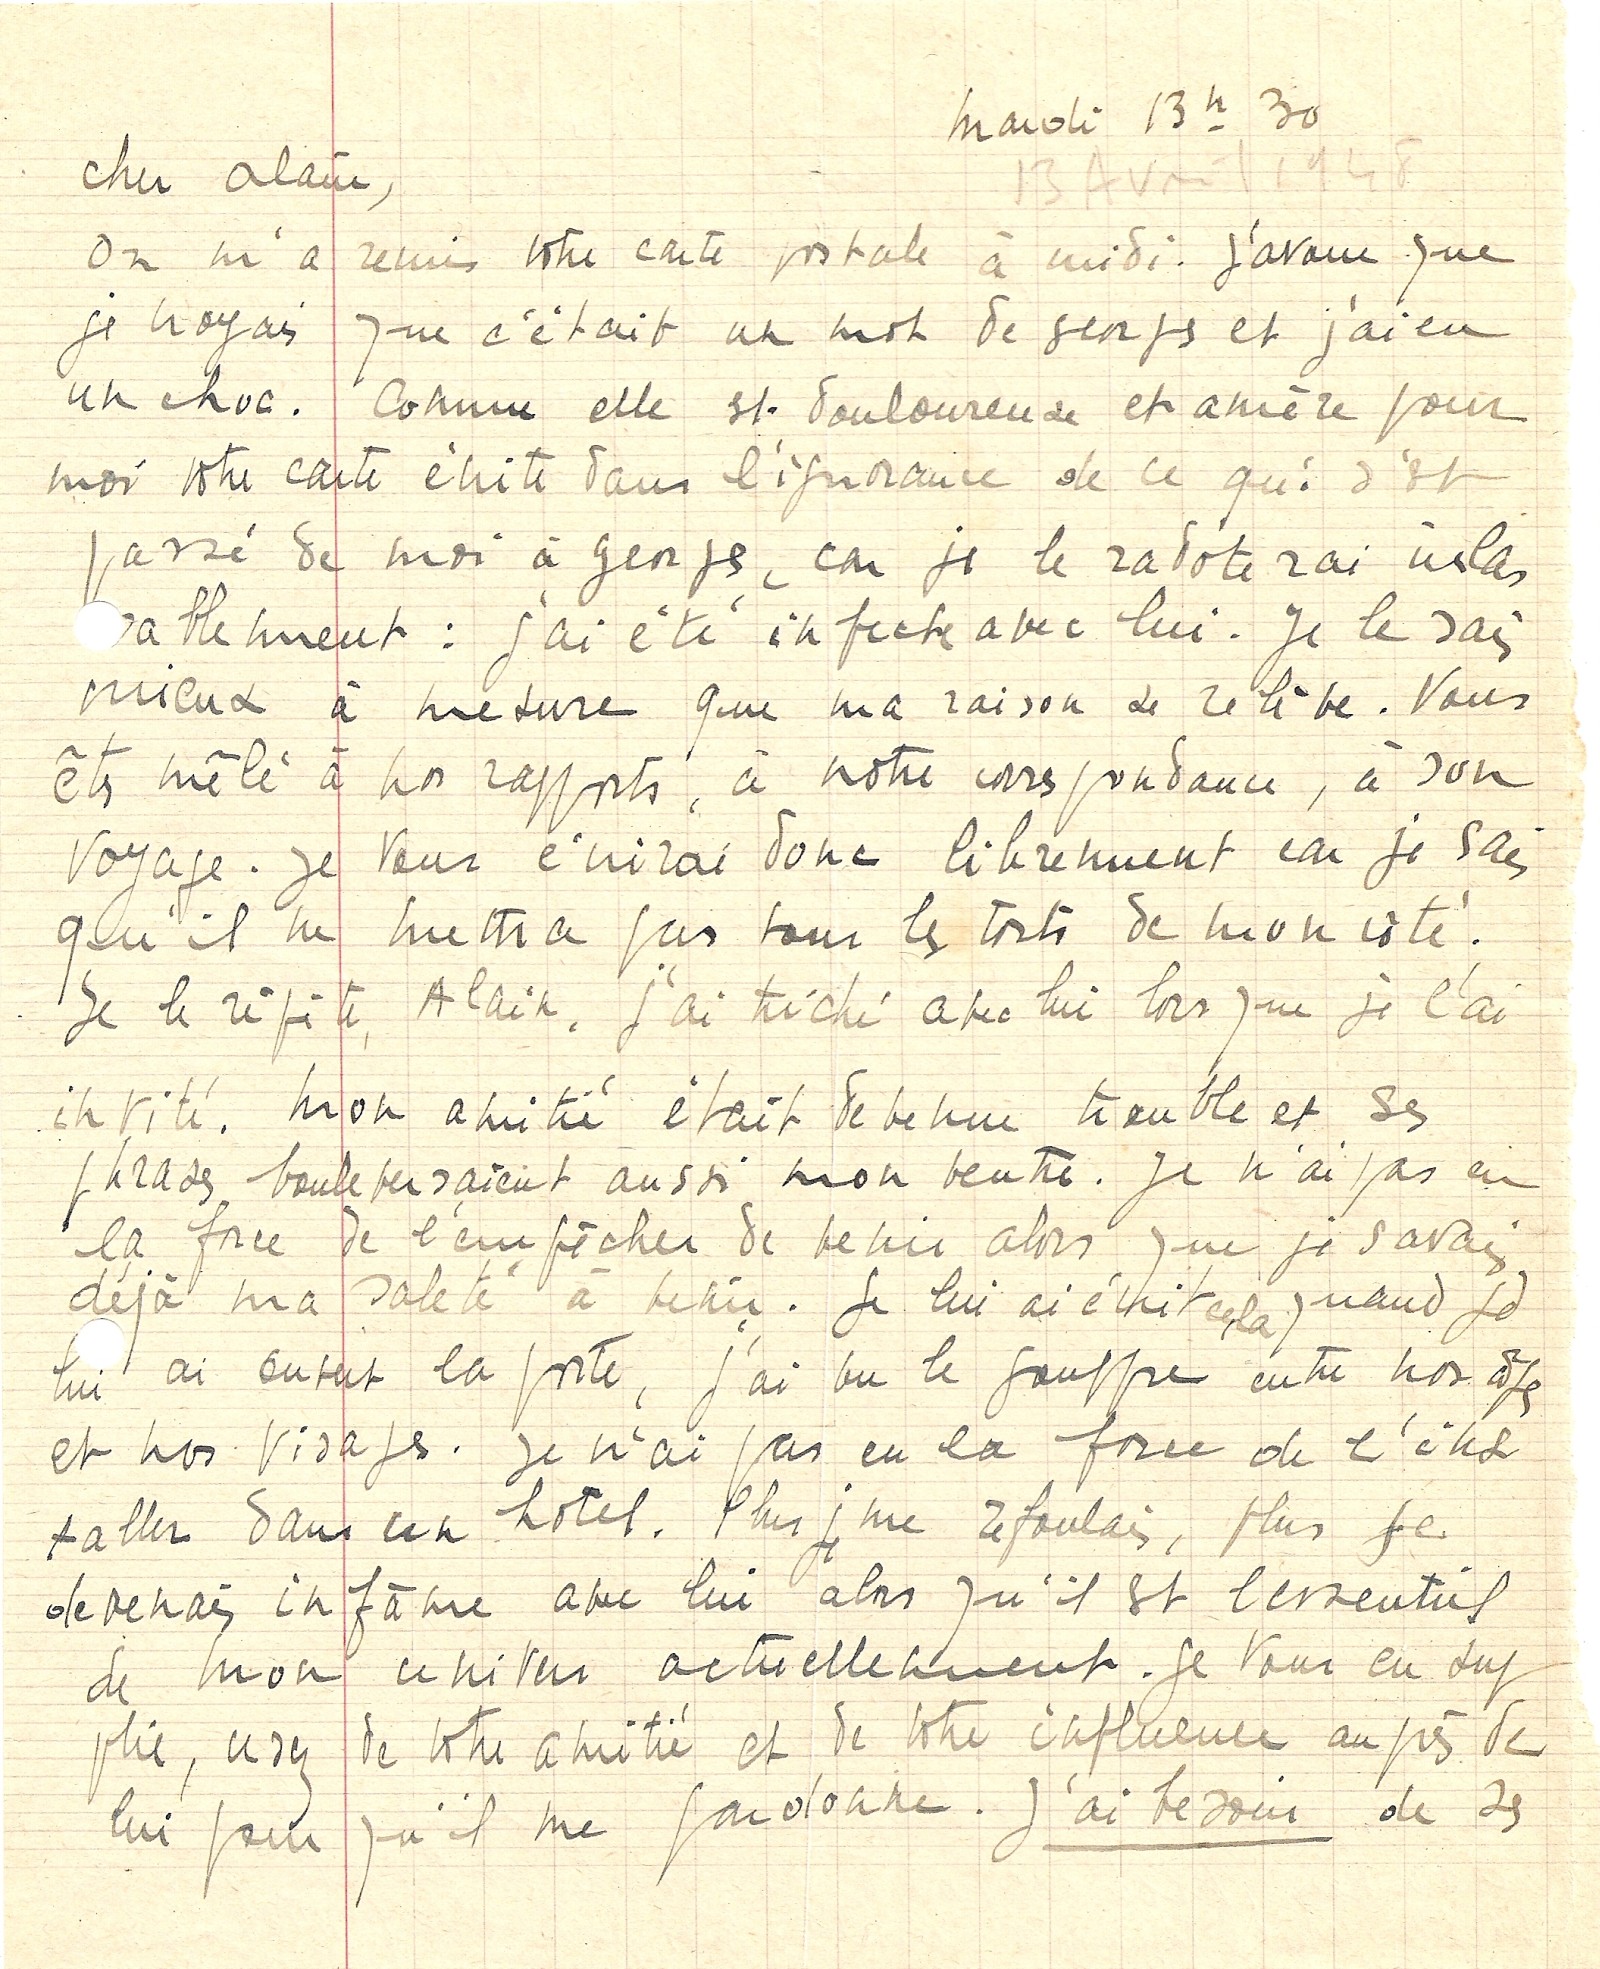 mardi 13h 30
13 Avril 1948
cher Alain,
On m'a remis votre carte postale à midi. J'avoue que
je croyais que c'était un mot de Georges et j'ai eu
un choc. Comme elle est douloureuse et amère pour
moi votre carte écrite dans l'ignorance de ce qui s'est
passé de moi à Georges, car je le radoterai inlas
sablement : j'ai été infecte avec lui. Je le sais
mieux à mesure que ma raison se relève. Vous
êtes mêlé à nos rapports, à notre correspondance, à son
voyage. Je vous écrirai donc librement car je sais
qu'il ne mettra pas tous les torts de mon côté.
Je le répète, Alain, j'ai triché avec lui lorsque je l'ai
invité. Mon amitié était devenue trouble et ses
phrases bouleversaient aussi mon ventre. Je n'ai pas eu
la force de l'empêcher de venir alors que je savais
déjà ma saleté à venir. Je lui ai écrit cela quand je
lui ai ouvert la porte, j'ai vu le gouffre entre nos âges
et nos visages. Je n'ai pas eu la force de l'ins
taller dans un hôtel. Plus je me refoulais, plus je
devenais infâme avec lui alors qu'il est l'essentiel
de mon univers actuellement. Je vous en sup
plie, usez de votre amitié et de votre influence auprès de
lui pour qu'il me pardonne. J'ai besoin de ses